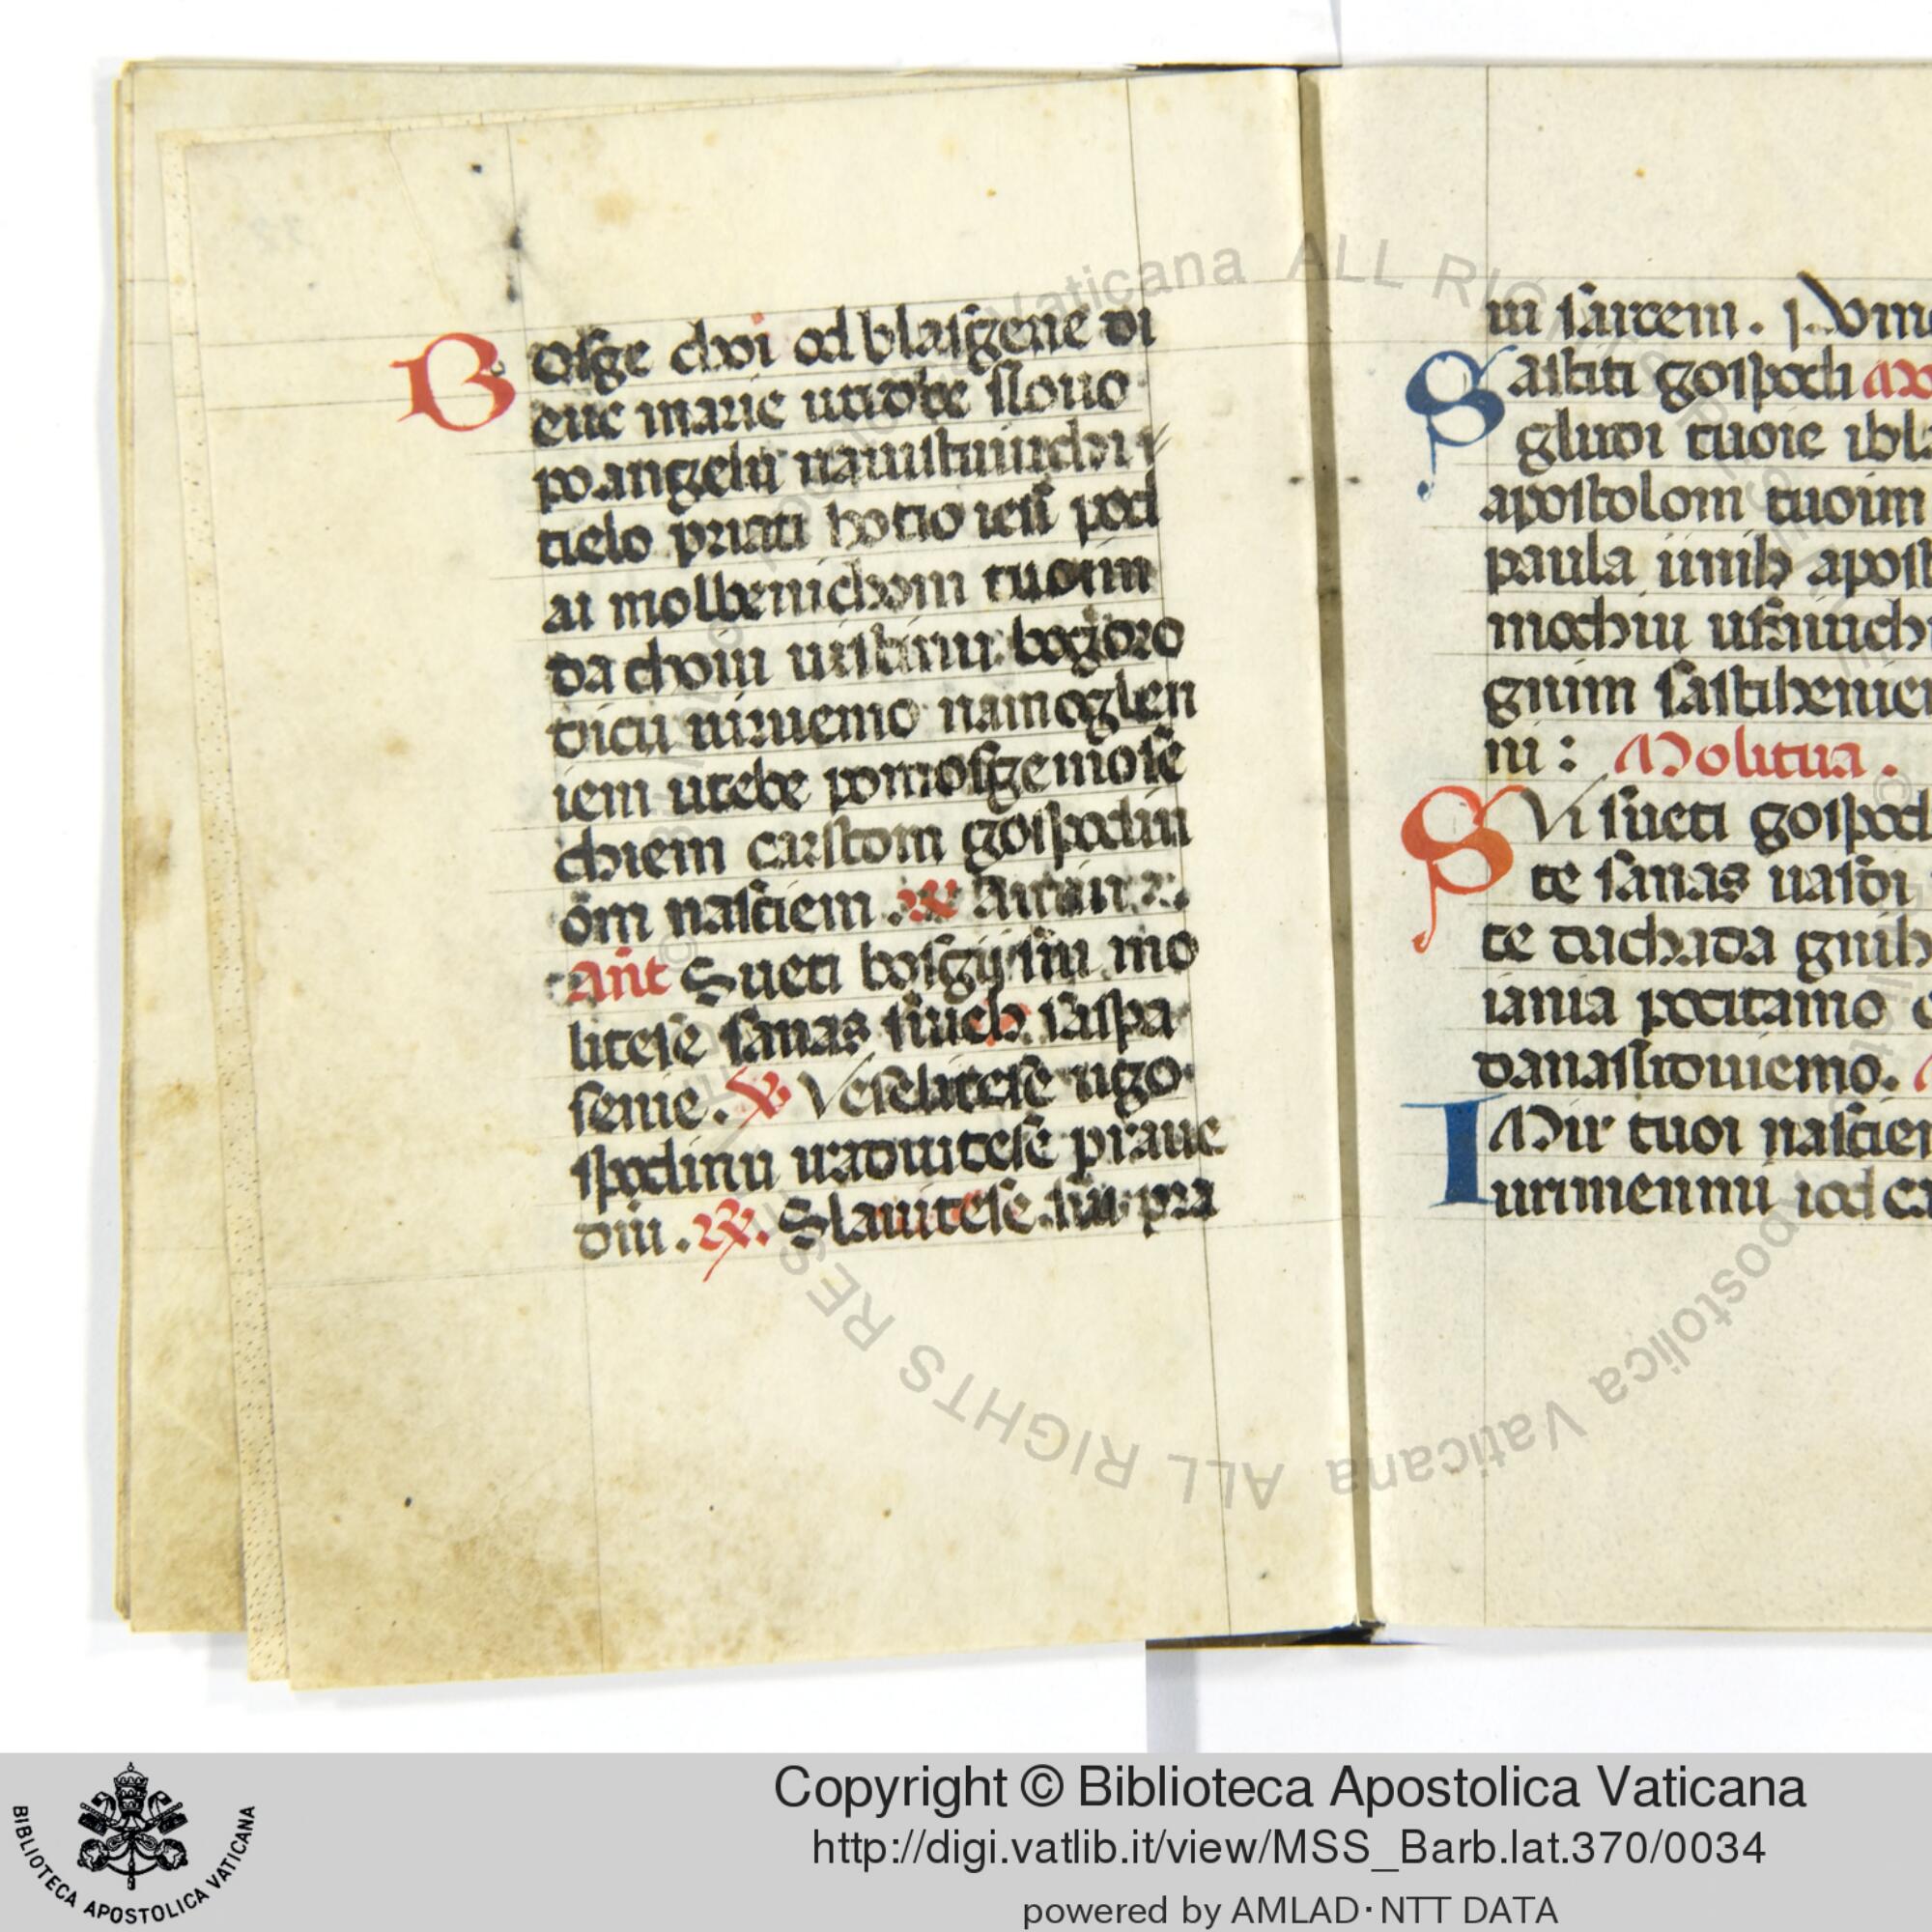 Bosge choi od blasgene di
eue marie utrobe slouo
po angelu nauistiuuchi i
tielo priati hotio iesi pod
ai molbenichom tuoim
da choiu uistinu bogoro
dicu uiruemo namoglen
iem utebe pomosgemose
chiem carstom gospodin
om nasciem. Antin
Ant Sueti bosgij sui mo
litese sanas suich saspa
senie. V Veselitese ugo
spodinu uraduitese praue
dni. R. Slauitese sui pra
ui sartem.
Sastiti gospodi
gludi tuoie ibla
apostolom tuoim
paula iinih apost
mochiu
gnim sastibenie
ni: Molitua.
Svi sueti gospod
te sanas uasdi
te dachada gnih
iania pocitamo
danaslidouiemo.
I Mir tuoi nascie
urimennu iod ca
Copyright © Biblioteca Apostolica Vaticana
http://digi.vatlib.it/view/MSS_Barb.lat.370/0034
powered by AMLAD·NTT DATA
BIBLIOTECA APOSTOLICA VATICANA